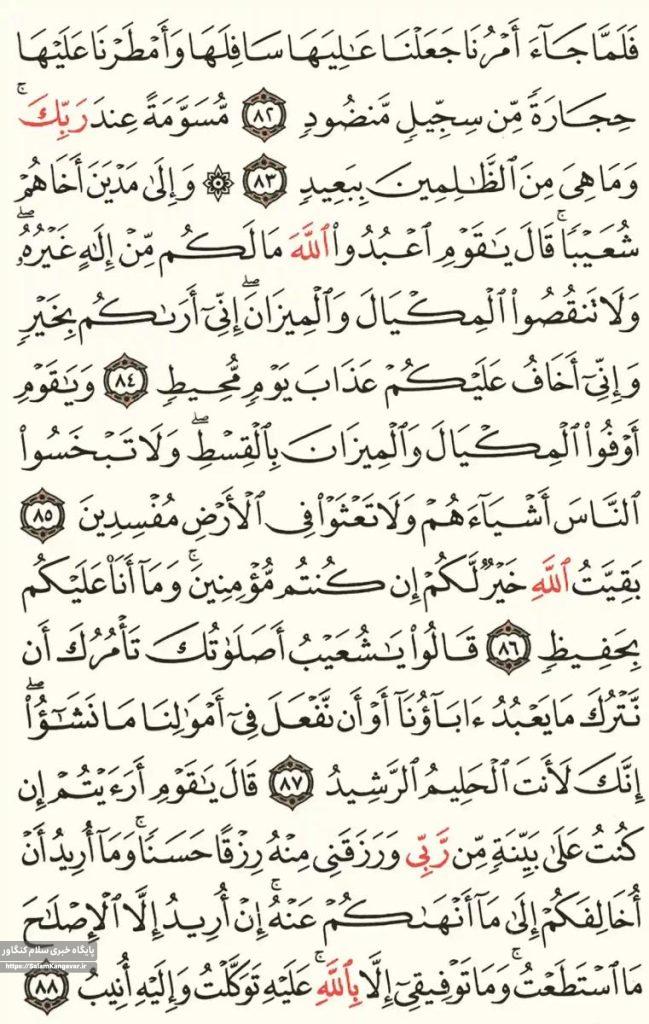 فَلَمَّا جَآءَ أَمْرُنَا جَعَلْنَا عَـٰلِيَهَا سَافِلَهَا وَأَمْطَرْنَا عَلَيْهَا
حِجَارَةً مِّن سِجِّيلٍ مَّنضُودٍ ٨٢ مُّسَوَّمَةً عِندَ رَبِّكَ ۖ
وَمَا هِىَ مِنَ ٱلظَّـٰلِمِينَ بِبَعِيدٍ ٨٣ ۞ وَإِلَىٰ مَدْيَنَ أَخَاهُمْ
شُعَيْبًا ۚ قَالَ يَـٰقَوْمِ ٱعْبُدُوا۟ ٱللَّهَ مَا لَكُم مِّنْ إِلَـٰهٍ غَيْرُهُۥ ۖ
وَلَا تَنقُصُوا۟ ٱلْمِكْيَالَ وَٱلْمِيزَانَ ۖ إِنِّىٓ أَرَىٰكُم بِخَيْرٍ
وَإِنِّىٓ أَخَافُ عَلَيْكُمْ عَذَابَ يَوْمٍ مُّحِيطٍ ٨٤ وَيَـٰقَوْمِ
أَوْفُوا۟ ٱلْمِكْيَالَ وَٱلْمِيزَانَ بِٱلْقِسْطِ ۖ وَلَا تَبْخَسُوا۟
ٱلنَّاسَ أَشْيَآءَهُمْ وَلَا تَعْثَوْا۟ فِى ٱلْأَرْضِ مُفْسِدِينَ ٨٥
بَقِيَّتُ ٱللَّهِ خَيْرٌ لَّكُمْ إِن كُنتُم مُّؤْمِنِينَ ۚ وَمَآ أَنَا۠ عَلَيْكُم
بِحَفِيظٍ ٨٦ قَالُوا۟ يَـٰشُعَيْبُ أَصَلَوٰتُكَ تَأْمُرُكَ أَن
نَّتْرُكَ مَا يَعْبُدُ ءَابَآؤُنَآ أَوْ أَن نَّفْعَلَ فِىٓ أَمْوَٰلِنَا مَا نَشَـٰٓؤُا۟ ۖ
إِنَّكَ لَأَنتَ ٱلْحَلِيمُ ٱلرَّشِيدُ ٨٧ قَالَ يَـٰقَوْمِ أَرَءَيْتُمْ إِن
كُنتُ عَلَىٰ بَيِّنَةٍ مِّن رَّبِّى وَرَزَقَنِى مِنْهُ رِزْقًا حَسَنًا ۚ وَمَآ أُرِيدُ أَنْ
أُخَالِفَكُمْ إِلَىٰ مَآ أَنْهَىٰكُمْ عَنْهُ ۚ إِنْ أُرِيدُ إِلَّا ٱلْإِصْلَـٰحَ
مَا ٱسْتَطَعْتُ ۚ وَمَا تَوْفِيقِىٓ إِلَّا بِٱللَّهِ ۚ عَلَيْهِ تَوَكَّلْتُ وَإِلَيْهِ أُنِيبُ ٨٨
پایگاه خبری سلام کنگاور
https://SalamKangavar.ir